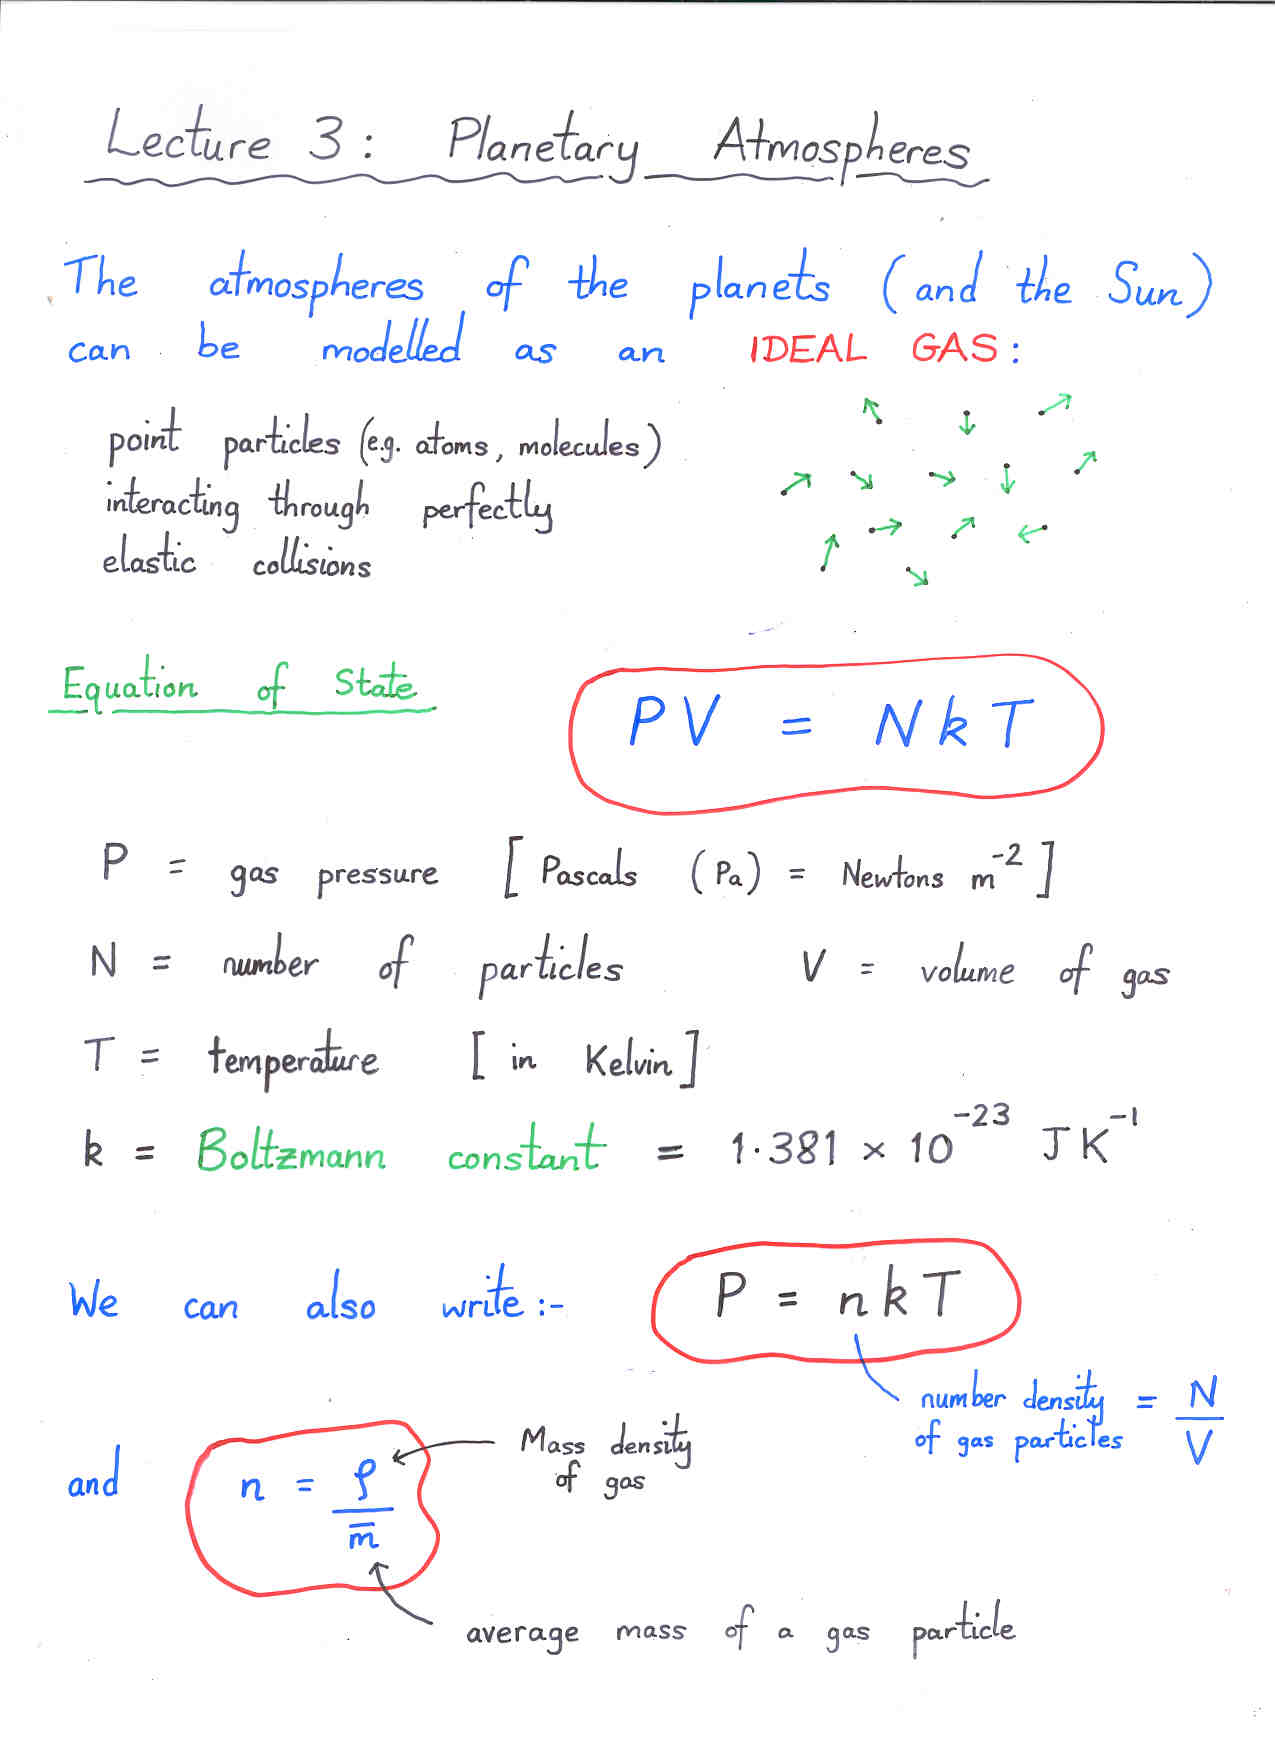 Lecture 3: Planetary Atmospheres
The atmospheres of the planets (and the Sun)
can be modelled as an IDEAL GAS:
point particles (e.g. atoms, molecules)
interacting through perfectly
elastic collisions
Equation of State
PV = NkT
P = gas pressure [Pascals (Pa) = Newtons m⁻²]
N = number of particles V = volume of gas
T = temperature [in Kelvin]
k = Boltzmann constant = 1·381 × 10⁻²³ JK⁻¹
We can also write:- P = nkT
number density of gas particles = N/V
and n = ρ/m̄
Mass density
of gas
average mass of a gas particle